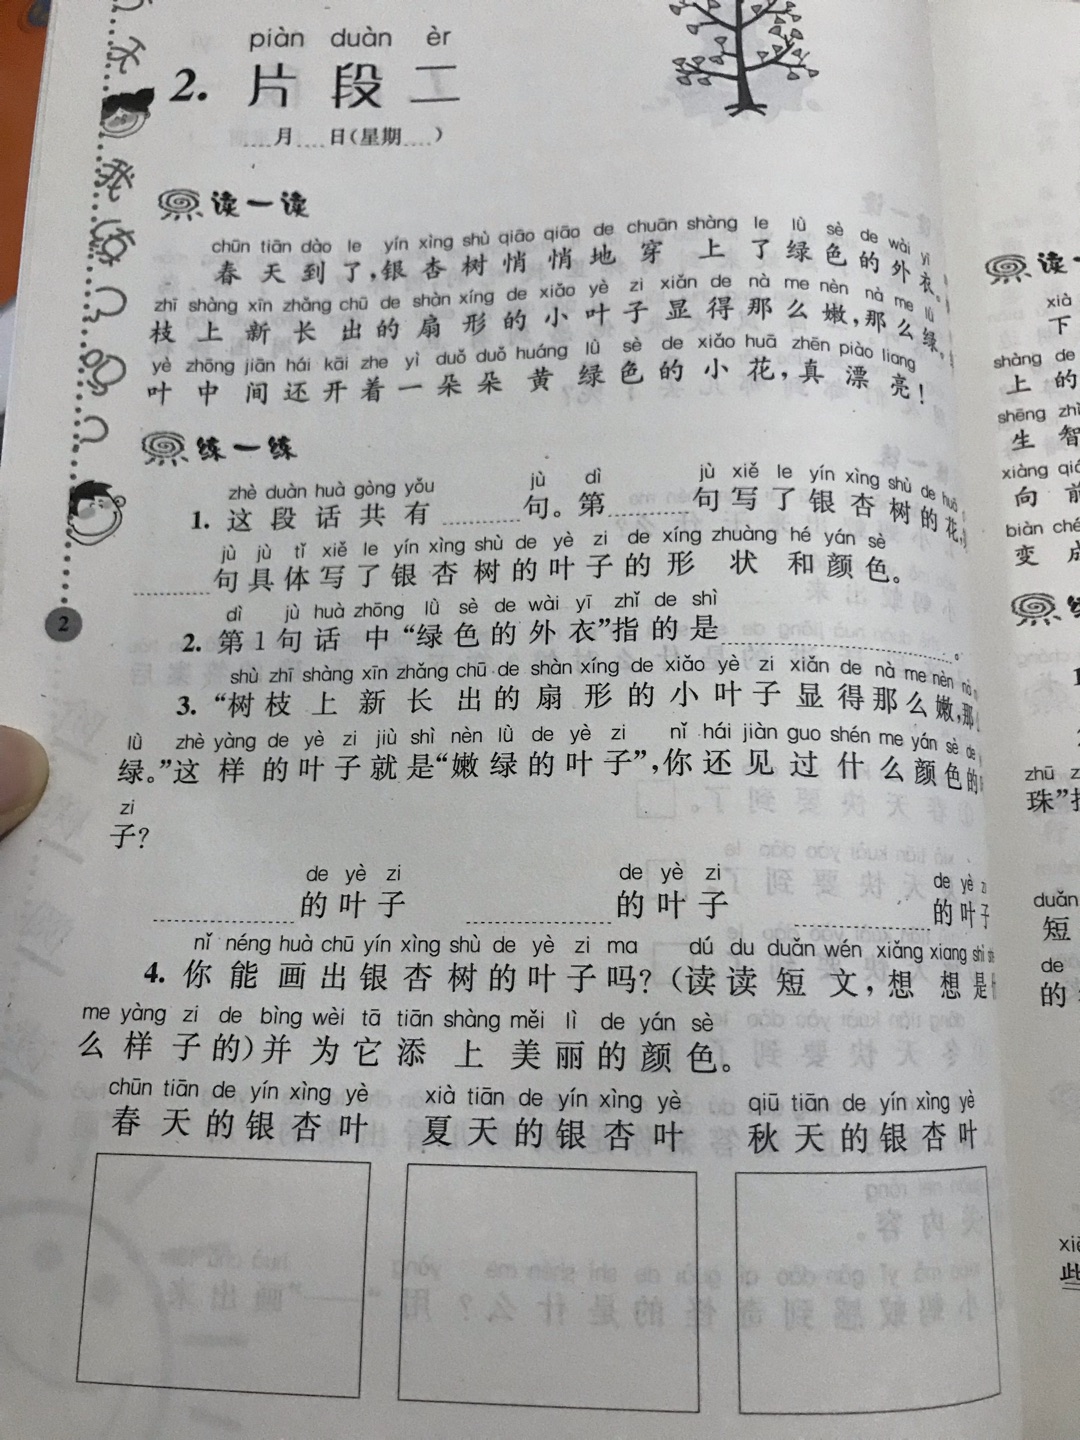 piàn duàn èr
2. 片段二
月 日(星期 )
读一读
chūn tiān dào le yín xìng shù qiāo qiāo de chuān shàng le lǜ sè de wài yī
春天到了,银杏树悄悄地穿上了绿色的外衣。
zhī shàng xīn zhǎng chū de shàn xíng de xiǎo yè zi xiǎn de nà me nèn nà me lǜ
枝上新长出的扇形的小叶子显得那么嫩,那么绿,
yè zhōng jiān hái kāi zhe yì duǒ duǒ huáng lǜ sè de xiǎo huā zhēn piào liang
叶中间还开着一朵朵黄绿色的小花,真漂亮!
练一练
zhè duàn huà gòng yǒu jù dì jù xiě le yín xìng shù de huā
1. 这段话共有 句。第 句写了银杏树的花,
jù jù tǐ xiě le yín xìng shù de yè zi de xíng zhuàng hé yán sè
句具体写了银杏树的叶子的形状和颜色。
dì jù huà zhōng lǜ sè de wài yī zhǐ de shì
2. 第1句话中“绿色的外衣”指的是 。
shù zhī shàng xīn zhǎng chū de shàn xíng de xiǎo yè zi xiǎn de nà me nèn nà
3. “树枝上新长出的扇形的小叶子显得那么嫩,那
lǜ zhè yàng de yè zi jiù shì nèn lǜ de yè zi nǐ hái jiàn guo shén me yán sè de
绿。”这样的叶子就是“嫩绿的叶子”,你还见过什么颜色的
zi
子?
de yè zi de yè zi de yè zi
的叶子 的叶子 的叶子
nǐ néng huà chū yín xìng shù de yè zi ma dú du duǎn wén xiǎng xiang shì
4. 你能画出银杏树的叶子吗?(读读短文,想想是
me yàng zi de bìng wèi tā tiān shàng měi lì de yán sè
么样子的)并为它添上美丽的颜色。
chūn tiān de yín xìng yè xià tiān de yín xìng yè qiū tiān de yín xìng yè
春天的银杏叶 夏天的银杏叶 秋天的银杏叶
2
读
xià
下
shàng de
上的
shēng zhì
生智
xiàng qián
向前
biàn chéng
变成
zhū
珠”
duǎn
短
de
的
xiē
些